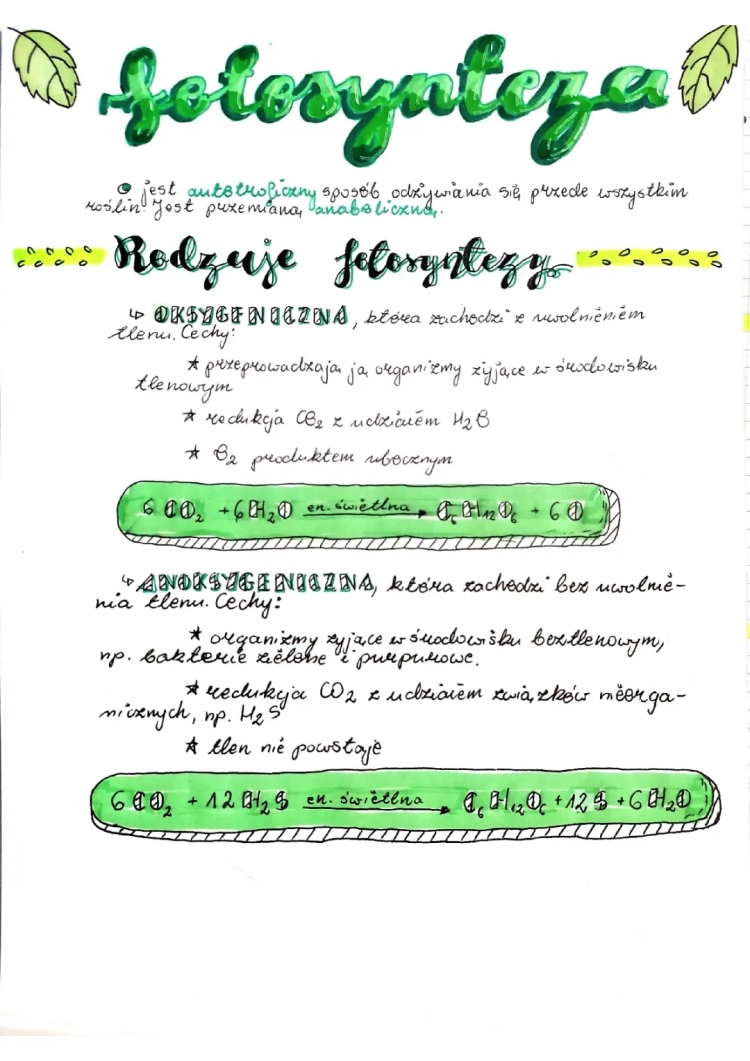 fotosynteza
jest autotroficzny sposób odżywiania się przede wszystkim
roślin. Jest przemianą anaboliczną.
Rodzaje fotosyntezy
↳ OKSYGENICZNA, która zachodzi z uwolnieniem
tlenu. Cechy:
★ przeprowadzają ją organizmy żyjące w środowisku
tlenowym
★ redukcja CO₂ z udziałem H₂O
★ O₂ produktem ubocznym
6 CO₂ + 6H₂O en. świetlna → C₆H₁₂O₆ + 6 O
↳ ANOKSYGENICZNA, która zachodzi bez uwolnie-
nia tlenu. Cechy:
★ organizmy żyjące w środowisku beztlenowym,
np. bakterie zielone i purpurowe.
★ redukcja CO₂ z udziałem związków nieorga-
nicznych, np. H₂S
★ tlen nie powstaje
6 CO₂ + 12 H₂S en. świetlna → C₆H₁₂O₆ + 12 S + 6 H₂O